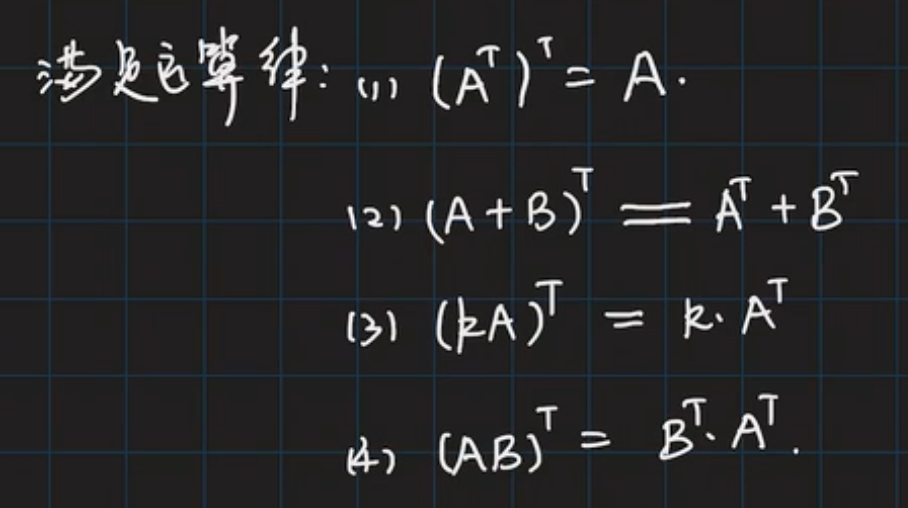 满足运算律: (1) (Aᵀ)ᵀ = A.
(2) (A+B)ᵀ = Aᵀ + Bᵀ
(3) (kA)ᵀ = k. Aᵀ
(4) (AB)ᵀ = Bᵀ. Aᵀ.